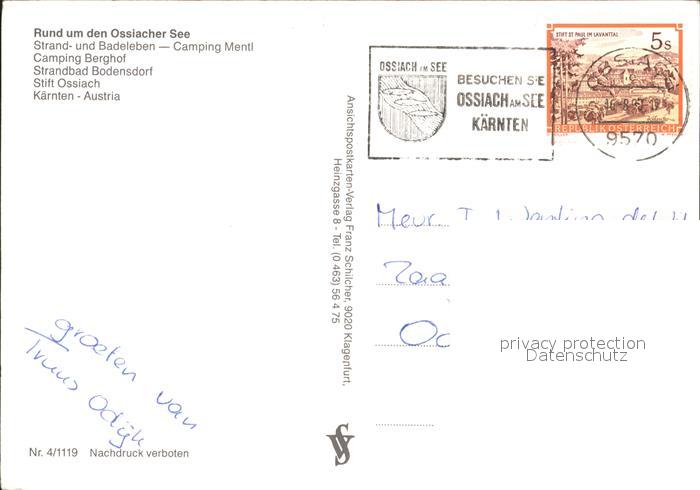 Rund um den Ossiacher See
Strand- und Badeleben — Camping Mentl
Camping Berghof
Strandbad Bodensdorf
Stift Ossiach
Kärnten - Austria
groeten van
Truus Odijk
Nr. 4/1119 Nachdruck verboten
Ansichtspostkarten-Verlag Franz Schilcher, 9020 Klagenfurt,
Heinzgasse 8 - Tel. (0 463) 56 4 75
OSSIACH AM SEE
BESUCHEN SIE
OSSIACH AM SEE
KÄRNTEN
STIFT ST. PAUL IM LAVANTTAL
5s
REPUBLIK ÖSTERREICH
9570
Mevr.
privacy protection
Datenschutz